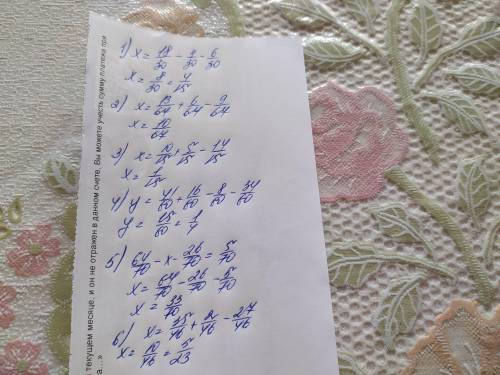 1) x = 18/30 - 4/30 - 6/30
x = 8/30 = 4/15
2) x = 13/64 + 6/64 - 9/64
x = 10/64
3) x = 10/15 + 5/15 - 14/15
x = 1/15
4) y = 41/60 + 16/60 - 8/60 - 34/60
y = 15/60 = 1/4
5) 64/70 - x - 26/70 = 5/70
x = 64/70 - 26/70 - 5/70
x = 33/70
6) x = 35/46 + 2/46 - 27/46
x = 10/46 = 5/23
текущем месяце, и он не отражен в данном счете, Вы можете учесть сумму платежа при
а...»